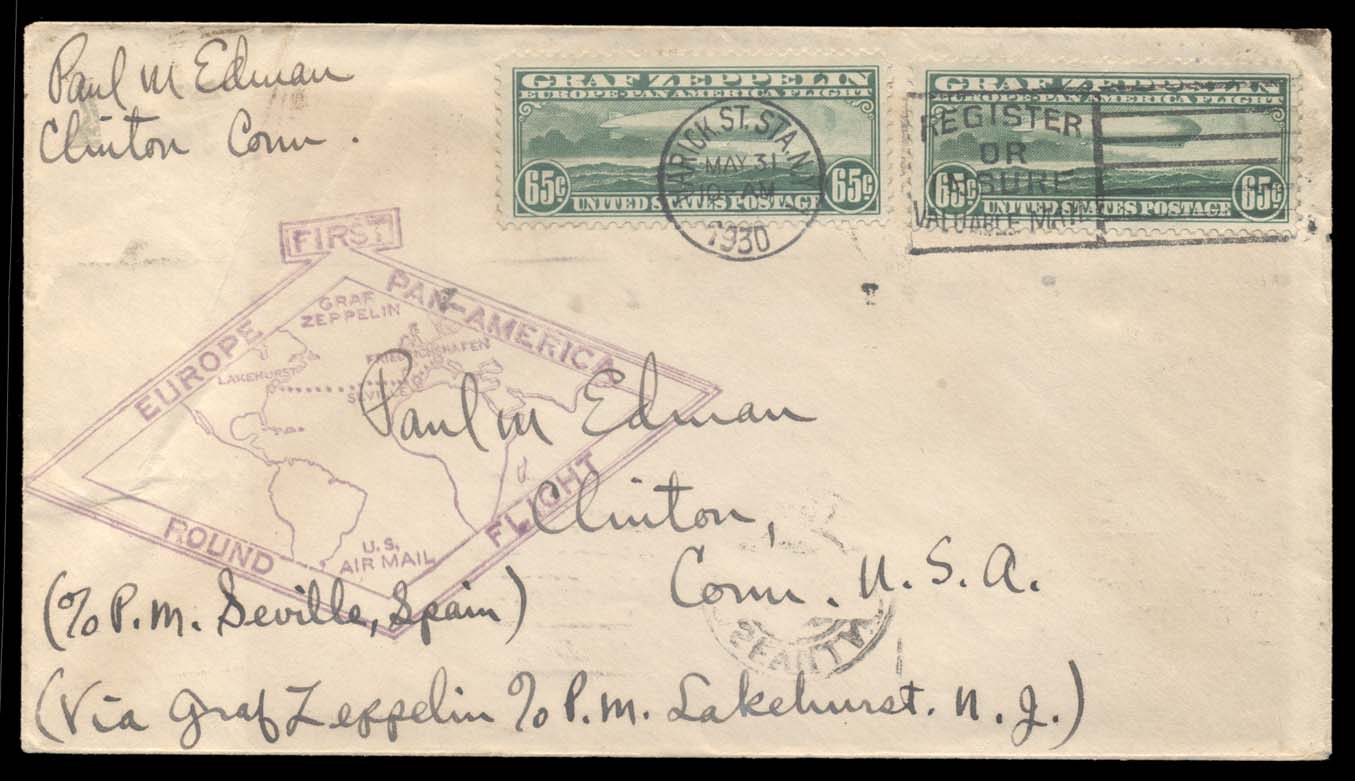 Paul M Edman
Clinton Conn.
GRAF ZEPPELIN
EUROPE-PAN AMERICA FLIGHT
65¢ 65¢
UNITED STATES POSTAGE
GRAF ZEPPELIN
EUROPE-PAN AMERICA FLIGHT
65¢ 65¢
UNITED STATES POSTAGE
VARICK ST. STA. N.Y.
MAY 31
10 AM
1930
REGISTER
OR
INSURE
VALUABLE MAIL
FIRST
EUROPE PAN-AMERICA
GRAF
ZEPPELIN
FRIEDRICHSHAFEN
LAKEHURST
SEVILLE
ROUND FLIGHT
U.S.
AIR MAIL
Paul M Edman
Clinton,
Conn. U.S.A.
(℅ P.M. Seville, Spain)
(Via Graf Zeppelin ℅ P.M. Lakehurst. N.J.)